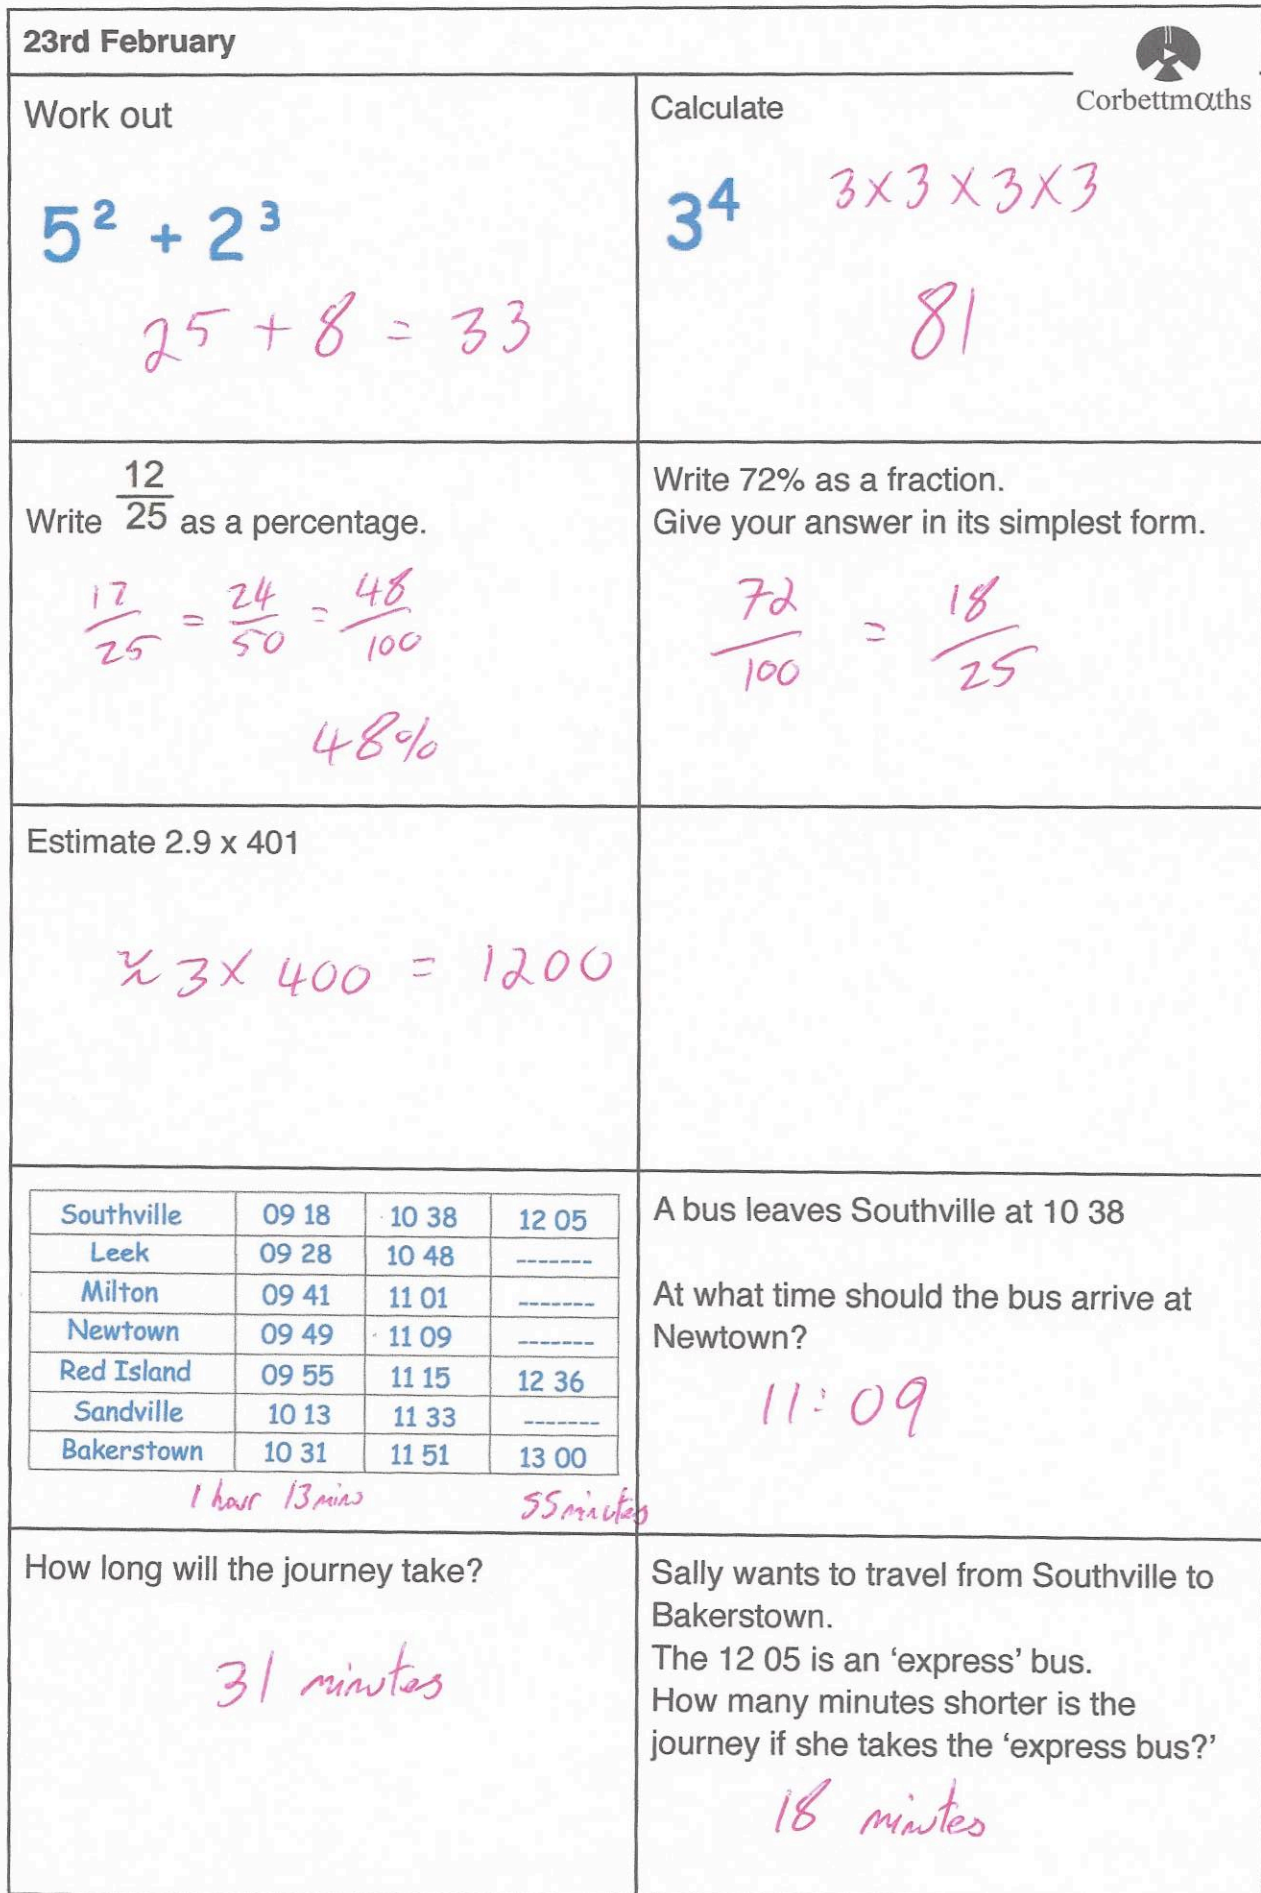 23rd February
Corbettmαths
Work out
5² + 2³
25 + 8 = 33
Calculate
3⁴
3 x 3 x 3 x 3
81
Write 12/25 as a percentage.
12/25 = 24/50 = 48/100
48%
Write 72% as a fraction.
Give your answer in its simplest form.
72/100 = 18/25
Estimate 2.9 x 401
≈ 3 x 400 = 1200
Southville 09 18 10 38 12 05
Leek 09 28 10 48 -------
Milton 09 41 11 01 -------
Newtown 09 49 11 09 -------
Red Island 09 55 11 15 12 36
Sandville 10 13 11 33 -------
Bakerstown 10 31 11 51 13 00
1 hour 13 mins 55 minutes
A bus leaves Southville at 10 38
At what time should the bus arrive at
Newtown?
11:09
How long will the journey take?
31 minutes
Sally wants to travel from Southville to
Bakerstown.
The 12 05 is an ‘express’ bus.
How many minutes shorter is the
journey if she takes the ‘express bus?’
18 minutes